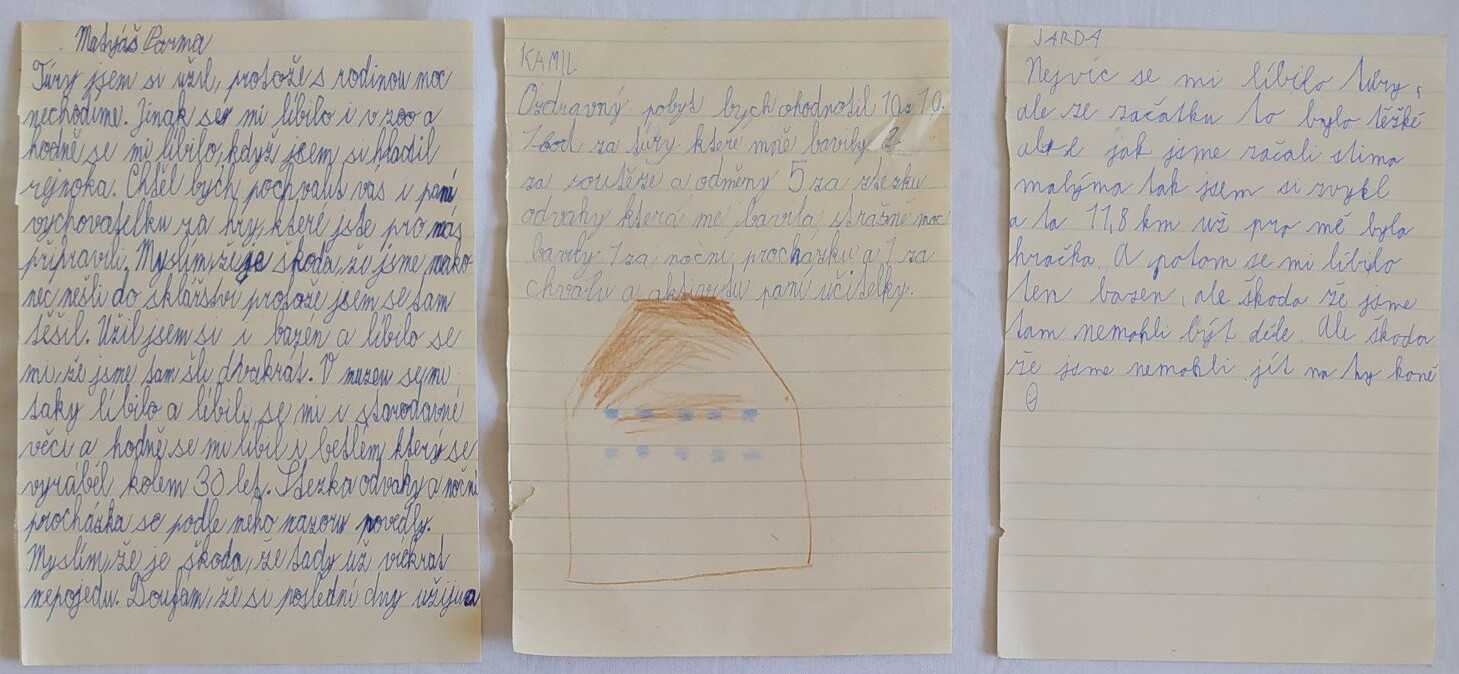 Matyáš Parma
Túry jsem si užil, protože s rodinou moc
nechodíme. Jinak se mi líbilo i v zoo a
hodně se mi líbilo, když jsem si hladil
rejnoka. Chěl bych pochválit vás i paní
vychovatelku za hry, které jste pro nás
připravili. Myslím, že je škoda, že jsme nako
nec nešli do sklářství protože jsem se tam
těšil. Užil jsem si i bazén a líbilo se
mi, že jsme tam šli dvakrát. V muzeu se mi
taky líbilo a líbily se mi i starodávné
věci a hodně se mi líbil i betlém, který se
vyráběl kolem 30 let. Stezka odvahy a noční
procházka se podle mého názoru povedly.
Myslím, že je škoda, že tady už víckrát
nepojedu. Doufám, že si poslední dny užiju
KAMIL
Ozdravný pobyt bych ohodnotil 10z 10.
1 bod za túry které mně bavily 2
za soutěže a odměny 5 za stezku
odvahy která mě bavila strašně moc
bavily 1 za noční procházku a 1 za
chválu a aktivitu paní učitelky.
JARDA
Nejvíc se mi líbilo túry,
ale ze začátku to bylo těžké
jak jsme začali stima
malýma tak jsem si zvykl
a ta 11,8 km už pro mě byla
hračka. A potom se mi líbilo
ten bazen, ale škoda že jsme
tam nemohli být déle. Ale škoda
že jsme nemohli jít na ty koně